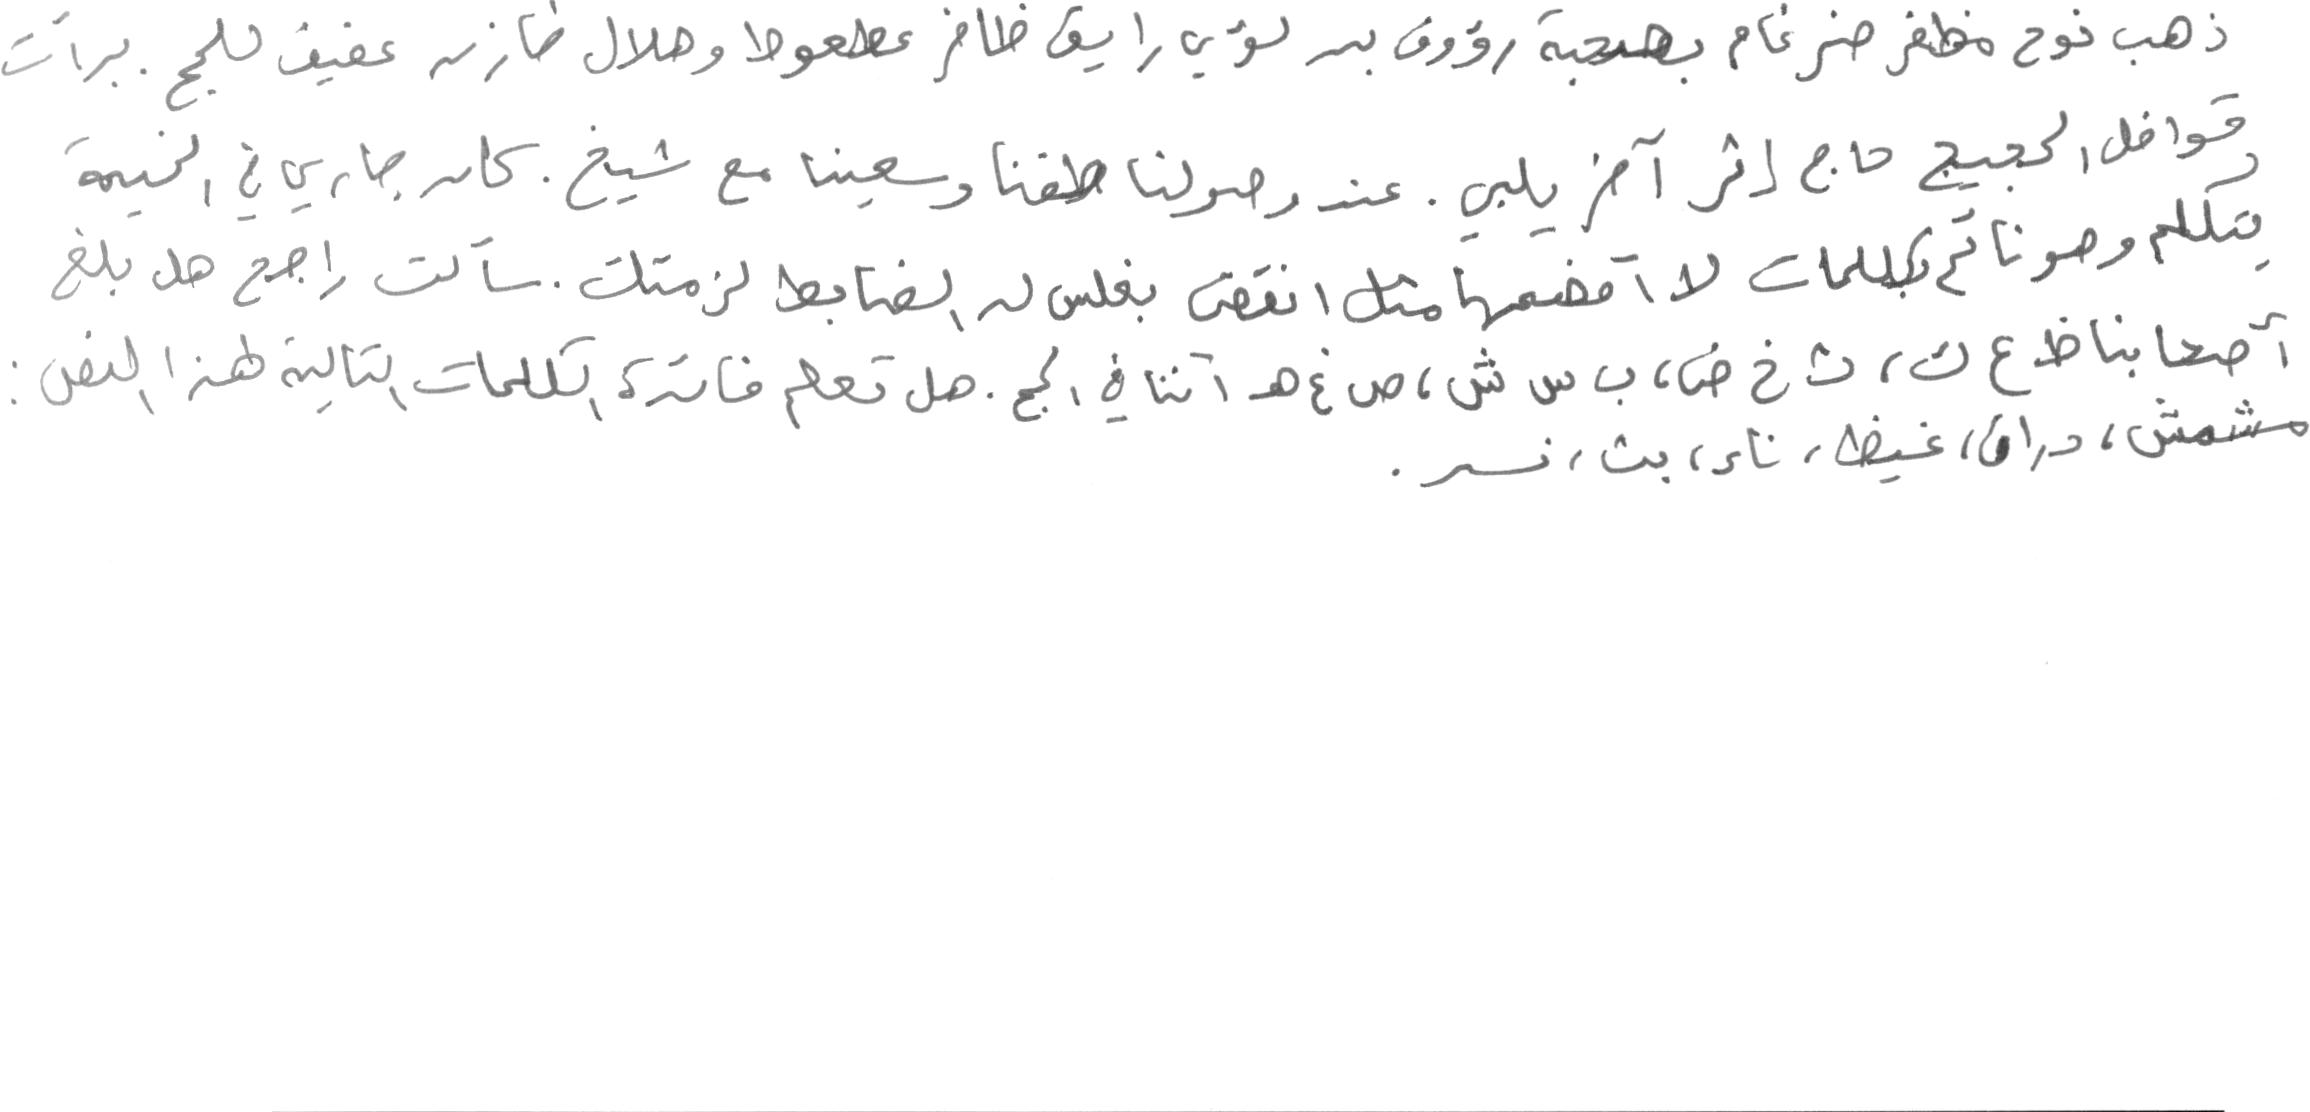 ذهب نوح مظفر ضرغام بصحبة رؤوف بن لؤي رايق ظافر عطعوط وهلال خازن عفيف للحج . بدأت
قوافل الحجيج حاج إثر آخر يلبي . عند وصولنا طفنا وسعينا مع شيخ . كان جاري في الخيمة
يتكلم وهو نائم بكلمات لا أفهمها مثل انقض بغلس لن الضابط لزمتك . سألت راجح هل بلغ
أصحابنا ظ ع ك ، ث خ ض ، ب س ش ، ص غ هـ أثنا في الحج . هل تعلم فائدة الكلمات التالية لهذا النص :
مشمش ، دراق ، غيظ ، ناء ، بث ، نسر .